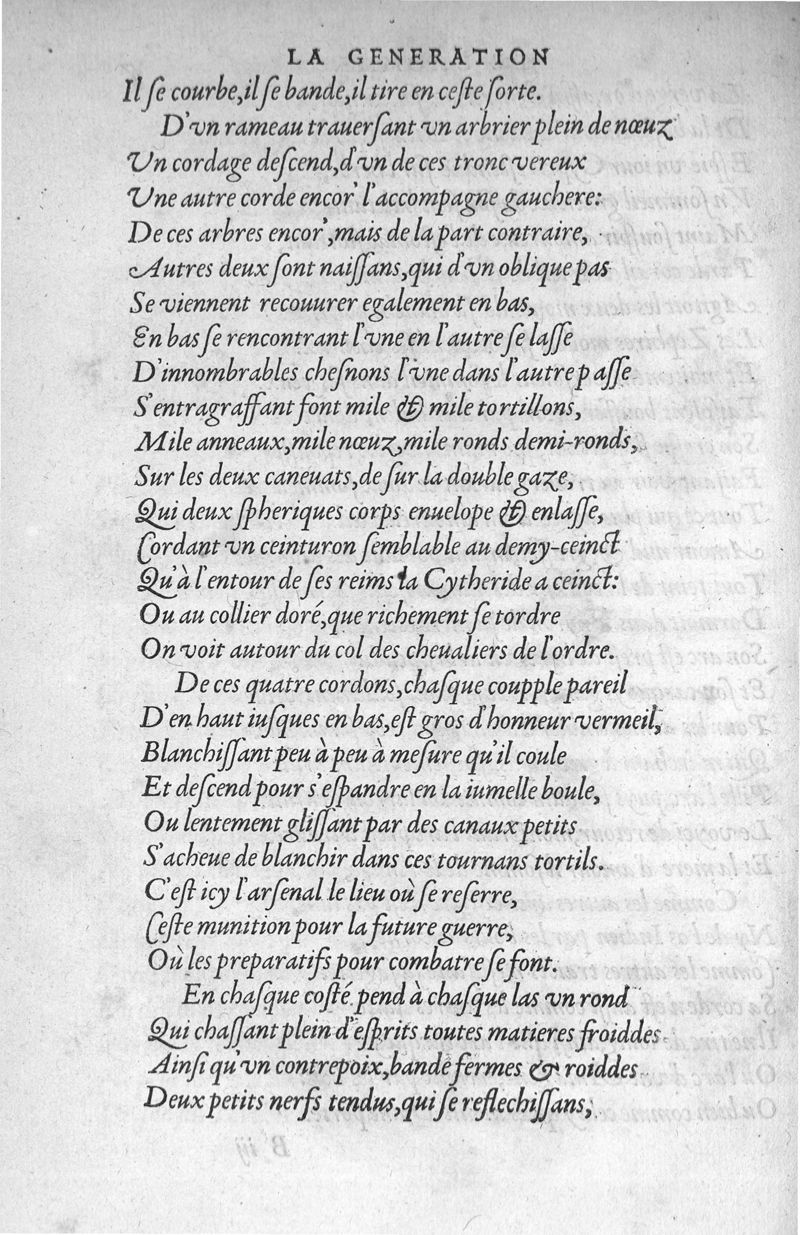 LA GENERATION
Il ſe courbe, il ſe bande, il tire en ceſte ſorte.
D'vn rameau trauerſant vn arbrier plein de nœuz
Vn cordage deſcend, d'vn de ces tronc vereux
Vne autre corde encor' l'accompagne gauchere:
De ces arbres encor', mais de la part contraire,
Autres deux ſont naiſſans, qui d'vn oblique pas
Se viennent recouurer egalement en bas,
En bas ſe rencontrant l'vne en l'autre ſe laſſe
D'innombrables cheſnons l'vne dans l'autre paſſe
S'entragraffant font mile & mile tortillons,
Mile anneaux, mile nœuz, mile ronds demi-ronds,
Sur les deux caneuats, de ſur la double gaze,
Qui deux ſpheriques corps enuelope & enlaſſe,
Cordant vn ceinturon ſemblable au demy-ceinct
Qu'à l'entour de ſes reims la Cytheride a ceinct:
Ou au collier doré, que richement ſe tordre
On voit autour du col des cheualiers de l'ordre.
De ces quatre cordons, chaſque coupple pareil
D'en haut iuſques en bas, eſt gros d'honneur vermeil,
Blanchiſſant peu à peu à meſure qu'il coule
Et deſcend pour s'eſpandre en la iumelle boule,
Ou lentement gliſſant par des canaux petits
S'acheue de blanchir dans ces tournans tortils.
C'eſt icy l'arſenal le lieu où ſe reſerre,
Ceſte munition pour la future guerre,
Où les preparatifs pour combatre ſe font.
En chaſque coſté pend à chaſque las vn rond
Qui chaſſant plein d'eſprits toutes matieres froiddes
Ainſi qu'vn contrepoix, bande fermes & roiddes
Deux petits nerfs tendus, qui ſe reflechiſſans,